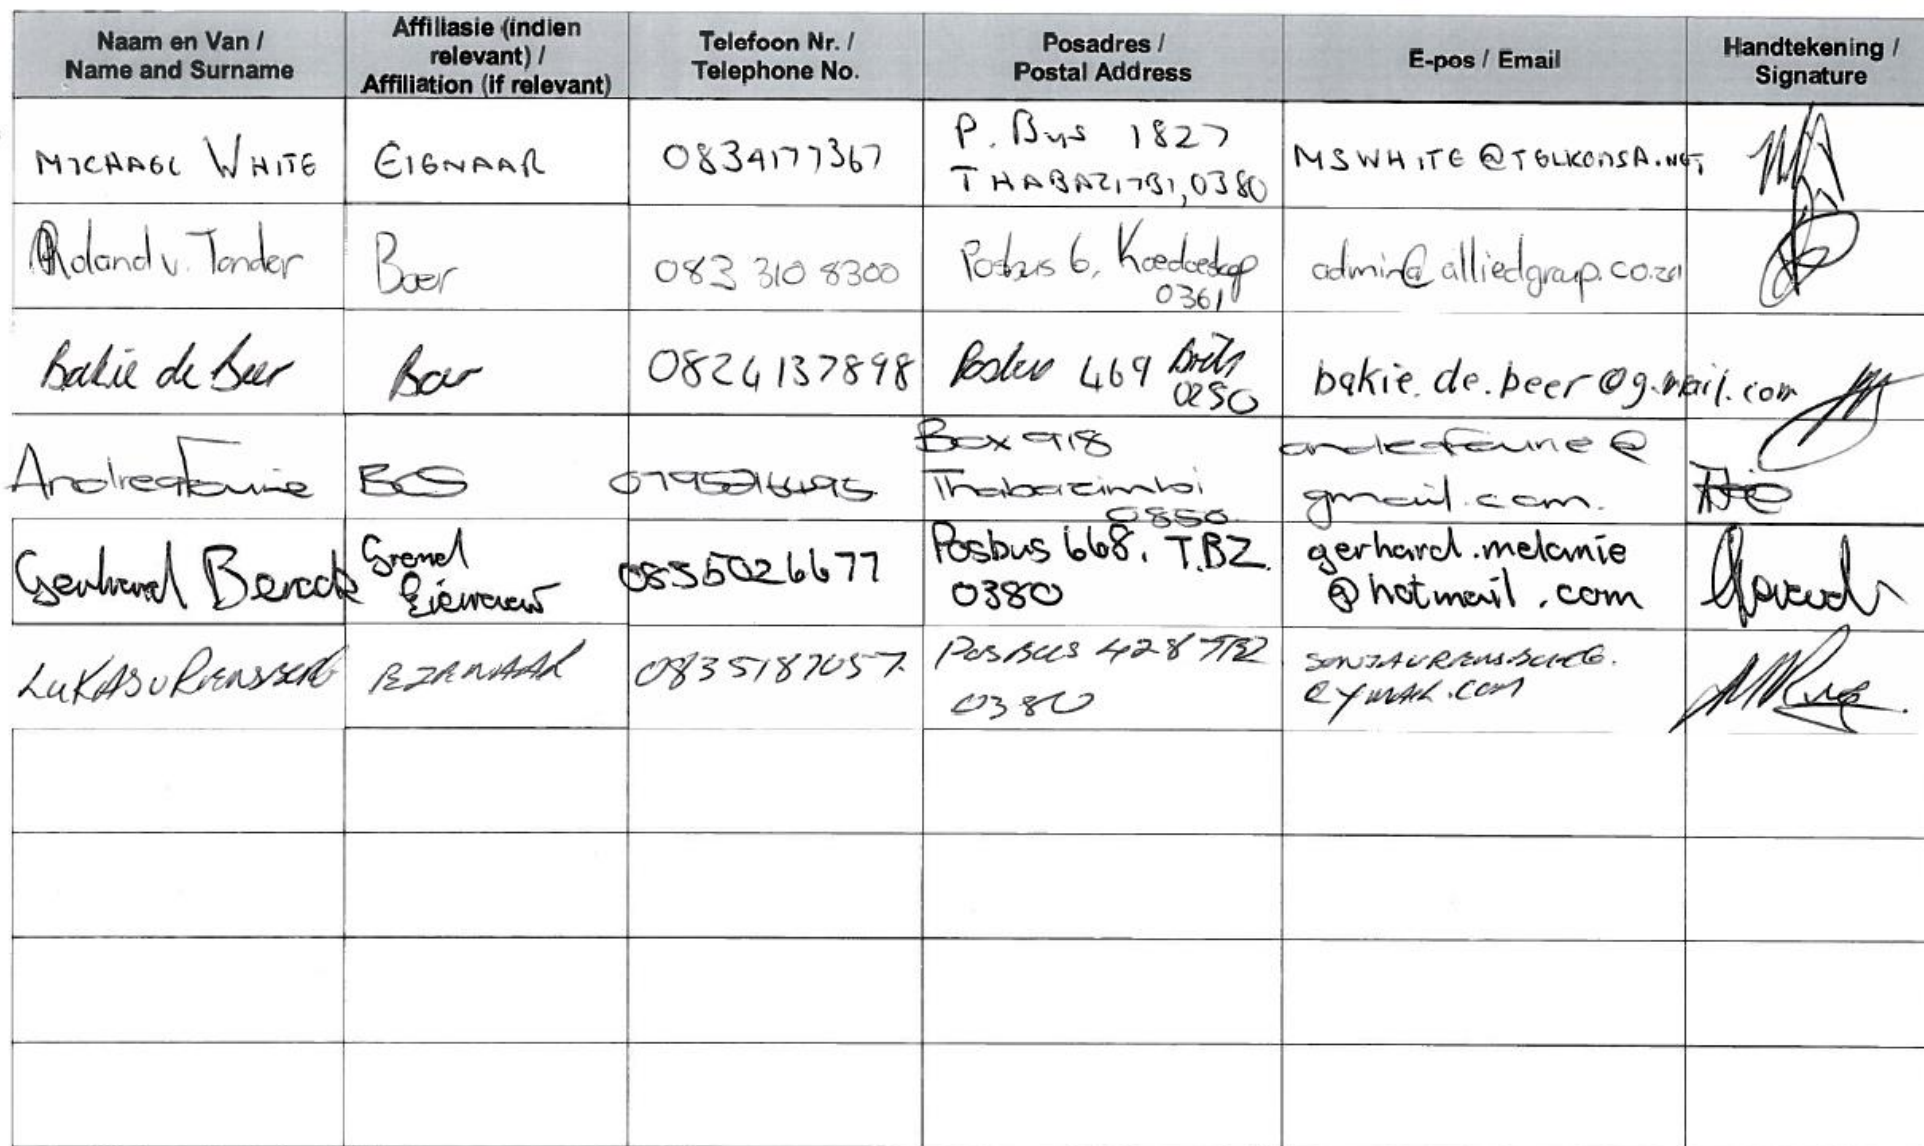 Naam en Van /
Name and Surname
Affiliasie (indien
relevant) /
Affiliation (if relevant)
Telefoon Nr. /
Telephone No.
Posadres /
Postal Address
E-pos / Email
Handtekening /
Signature
MICHAEL WHITE
EIGNAAR
0834177367
P. Bus 1827
THABAZIMBI, 0380
MSWHITE@TELKOMSA.NET
Roland v. Tonder
Boer
083 310 8300
Posbus 6, Koedoeskop
0361
admin@alliedgroup.co.za
Bakie de Beer
Boer
0824137898
Posbus 469 Brits
0250
bakie.de.beer@gmail.com
Andrea Fourie
Box 918
Thabazimbi
andreafourie@
gmail.com.
Gerhard
Grond
Eienaar
0835026677
Posbus 668, T.B.Z.
0380
gerhard.melanie
@hotmail.com
LUKAS
0835187057
POSBUS 428 TBZ
0380
@YMAIL.COM